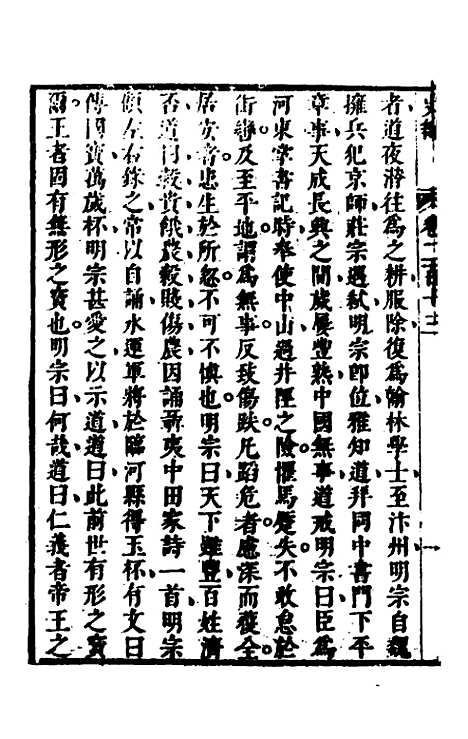 者道夜潜往爲之耕服除復爲翰林學士至汴州明宗自魏
擁兵犯京師莊宗遇弑明宗即位雅知道拜同中書門下平
章事天成長興之間歲屢豐熟中國無事道戒明宗曰臣爲
河東掌書記時奉使中山過井陘之險懼馬蹷失不敢怠於
銜轡及至平地謂爲無事反致傷跌凡蹈危者慮深而獲全
居安者患生於所忽不可不愼也明宗曰天下雖豐百姓濟
否道曰穀貴餓農穀賤傷農因誦聶夷中田家詩一首明宗
顧左右錄之常以自誦水運軍將於臨河縣得玉杯有文曰
傳國寶萬歲杯明宗甚愛之以示道道曰此前世有形之寶
爾王者固有無形之寶也明宗曰何哉道曰仁義者帝王之